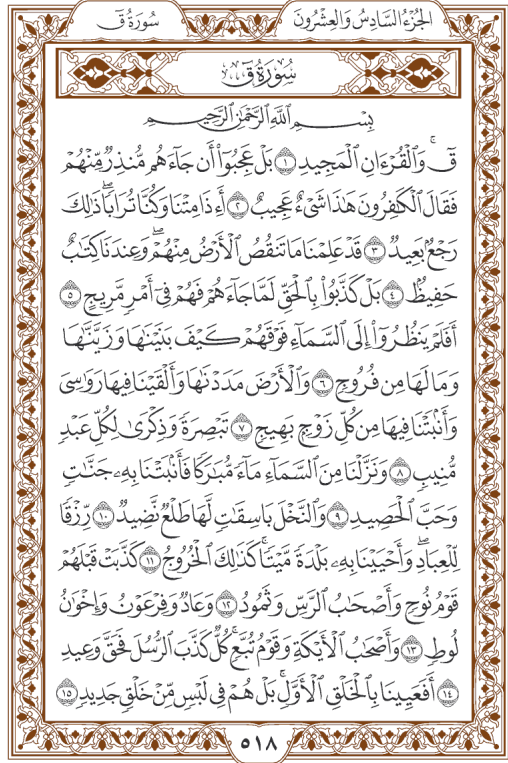 الجُزْءُ السَّادِسُ وَالعِشْرُونَ
سُورَةُ قٓ
سُورَةُ قٓ
بِسْمِ ٱللَّهِ ٱلرَّحْمَٰنِ ٱلرَّحِيمِ
قٓۚ وَٱلْقُرْءَانِ ٱلْمَجِيدِ ١ بَلْ عَجِبُوٓا۟ أَن جَآءَهُم مُّنذِرٌ مِّنْهُمْ
فَقَالَ ٱلْكَٰفِرُونَ هَٰذَا شَىْءٌ عَجِيبٌ ٢ أَءِذَا مِتْنَا وَكُنَّا تُرَابًاۖ ذَٰلِكَ
رَجْعٌۢ بَعِيدٌ ٣ قَدْ عَلِمْنَا مَا تَنقُصُ ٱلْأَرْضُ مِنْهُمْۖ وَعِندَنَا كِتَٰبٌ
حَفِيظٌۢ ٤ بَلْ كَذَّبُوا۟ بِٱلْحَقِّ لَمَّا جَآءَهُمْ فَهُمْ فِىٓ أَمْرٍ مَّرِيجٍ ٥
أَفَلَمْ يَنظُرُوٓا۟ إِلَى ٱلسَّمَآءِ فَوْقَهُمْ كَيْفَ بَنَيْنَٰهَا وَزَيَّنَّٰهَا
وَمَا لَهَا مِن فُرُوجٍ ٦ وَٱلْأَرْضَ مَدَدْنَٰهَا وَأَلْقَيْنَا فِيهَا رَوَٰسِىَ
وَأَنۢبَتْنَا فِيهَا مِن كُلِّ زَوْجٍۭ بَهِيجٍ ٧ تَبْصِرَةً وَذِكْرَىٰ لِكُلِّ عَبْدٍ
مُّنِيبٍ ٨ وَنَزَّلْنَا مِنَ ٱلسَّمَآءِ مَآءً مُّبَٰرَكًا فَأَنۢبَتْنَا بِهِۦ جَنَّٰتٍ
وَحَبَّ ٱلْحَصِيدِ ٩ وَٱلنَّخْلَ بَاسِقَٰتٍ لَّهَا طَلْعٌ نَّضِيدٌ ١٠ رِّزْقًا
لِّلْعِبَادِۖ وَأَحْيَيْنَا بِهِۦ بَلْدَةً مَّيْتًاۚ كَذَٰلِكَ ٱلْخُرُوجُ ١١ كَذَّبَتْ قَبْلَهُمْ
قَوْمُ نُوحٍ وَأَصْحَٰبُ ٱلرَّسِّ وَثَمُودُ ١٢ وَعَادٌ وَفِرْعَوْنُ وَإِخْوَٰنُ
لُوطٍ ١٣ وَأَصْحَٰبُ ٱلْأَيْكَةِ وَقَوْمُ تُبَّعٍۚ كُلٌّ كَذَّبَ ٱلرُّسُلَ فَحَقَّ وَعِيدِ
١٤ أَفَعَيِينَا بِٱلْخَلْقِ ٱلْأَوَّلِۚ بَلْ هُمْ فِى لَبْسٍ مِّنْ خَلْقٍ جَدِيدٍ ١٥
٥١٨